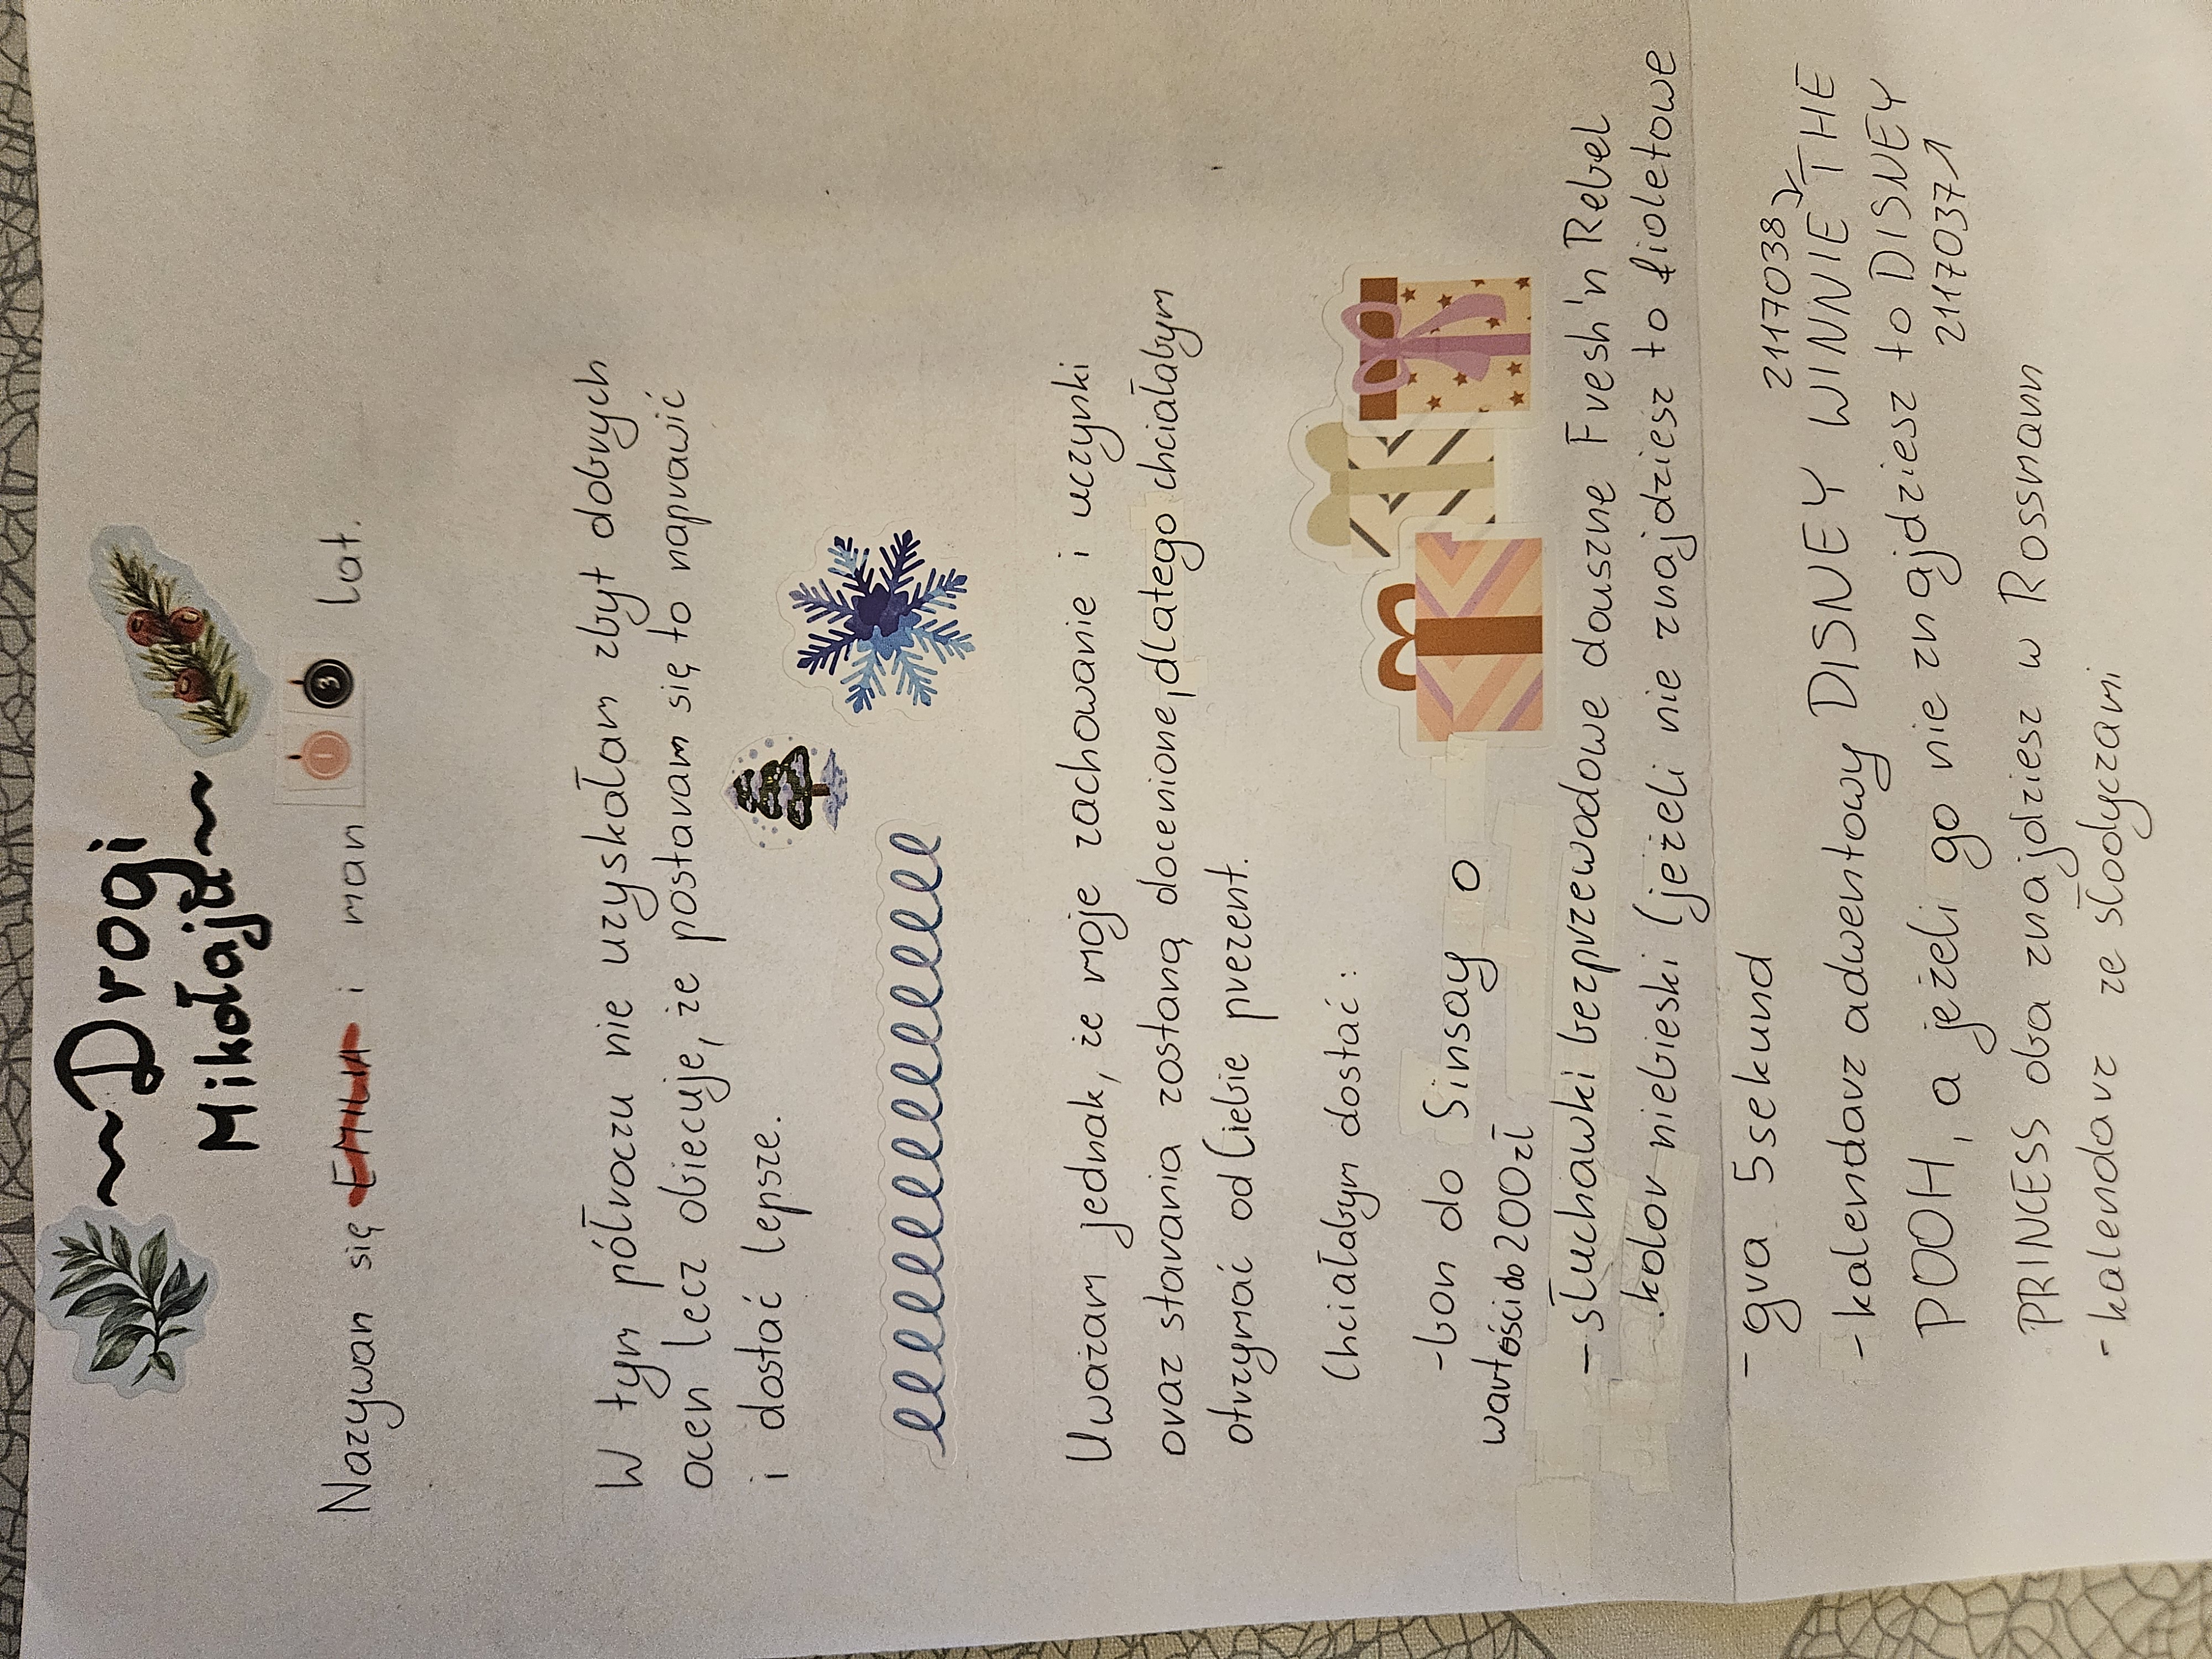 ~Drogi
Mikołaju~
Nazywam się i mam 1 3 lat.
W tym półroczu nie uzyskałam zbyt dobrych
ocen lecz obiecuję, że postaram się to naprawić
i dostać lepsze.
Uważam jednak, że moje zachowanie i uczynki
oraz starania zostaną docenione, dlatego chciałabym
otrzymać od Ciebie prezent.
Chciałabym dostać:
-bon do Sinsay o
wartości do 200zł
- słuchawki bezprzewodowe douszne Fresh'n Rebel
kolor niebieski (jeżeli nie znajdziesz to fioletowe
- gra 5 sekund
2117038
- kalendarz adwentowy DISNEY WINNIE THE
POOH, a jeżeli go nie znajdziesz to DISNEY
2117037
PRINCESS oba znajdziesz w Rossmann
- kalendarz ze słodyczami